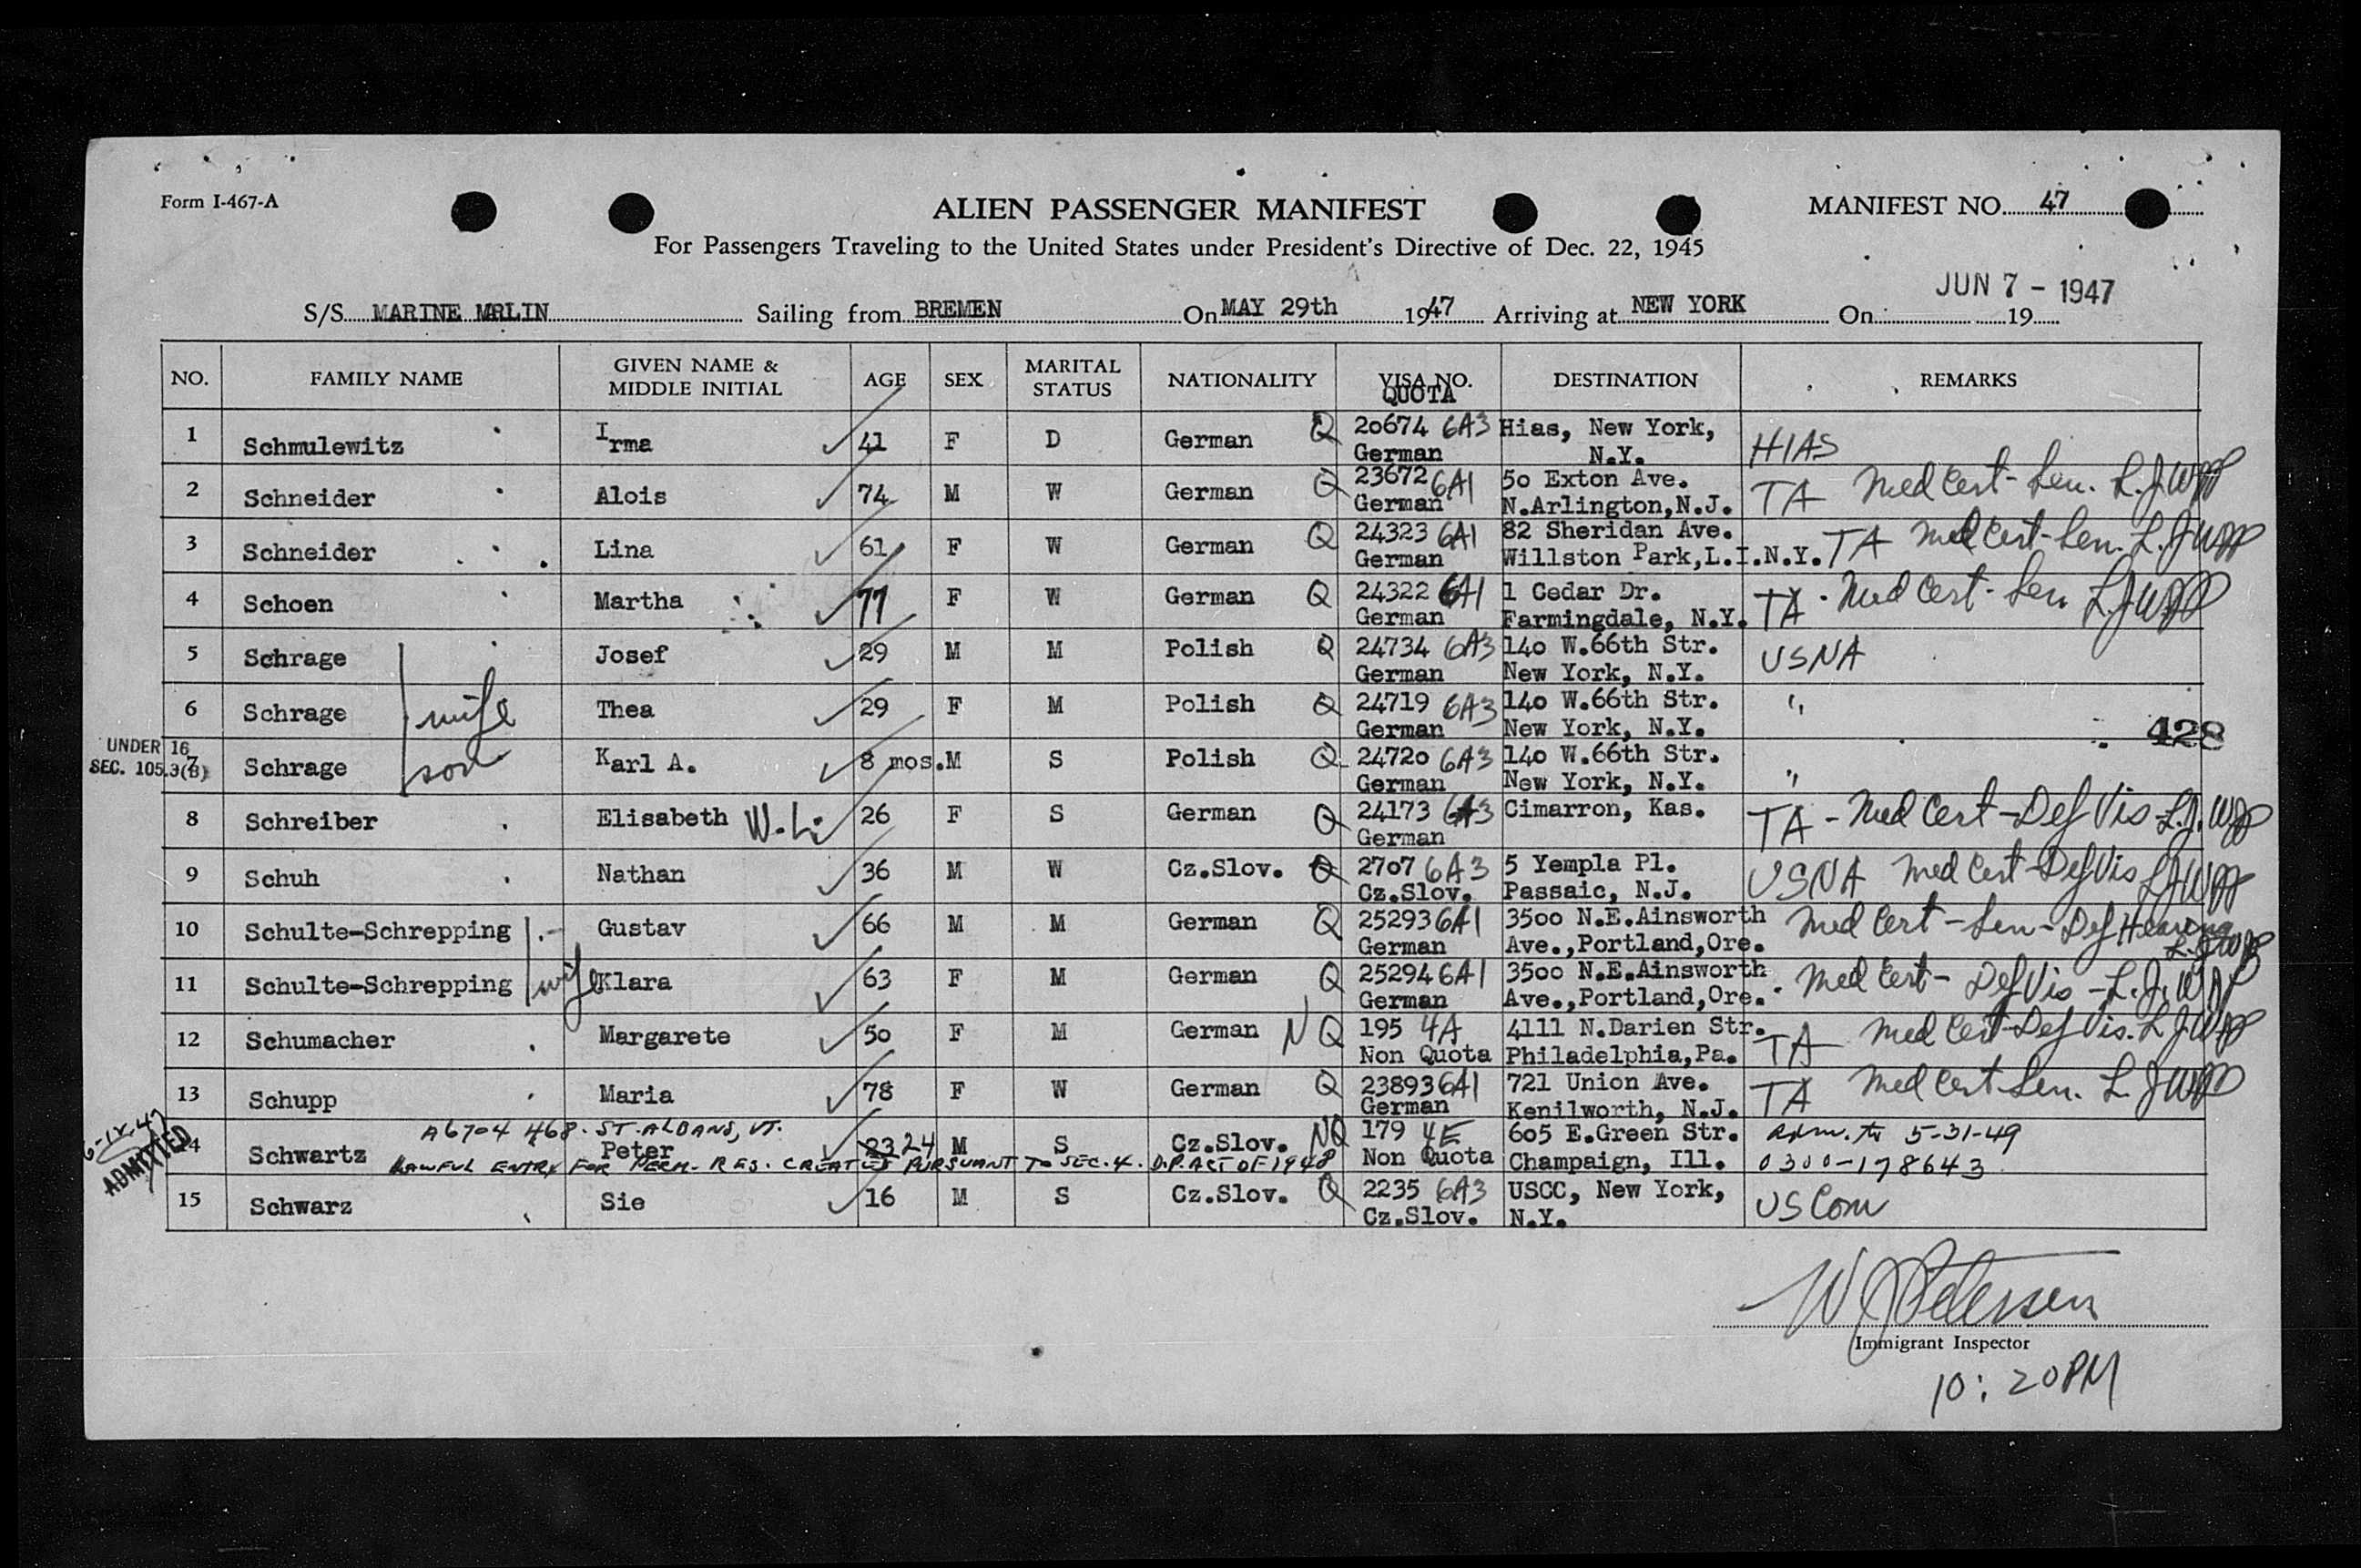 Form I-467-A
ALIEN PASSENGER MANIFEST
MANIFEST NO. 47
For Passengers Traveling to the United States under President's Directive of Dec. 22, 1945
JUN 7 - 1947
S/S MARINE MRLIN Sailing from BREMEN On MAY 29th 1947 Arriving at NEW YORK On 19
NO. FAMILY NAME GIVEN NAME & MIDDLE INITIAL AGE SEX MARITAL STATUS NATIONALITY VISA NO. QUOTA DESTINATION REMARKS
1 Schmulewitz Irma 41 F D German Q 20674 6A3 Hias, New York,
German N.Y. HIAS
2 Schneider Alois 74 M W German Q 23672 6A1 50 Exton Ave.
German N.Arlington,N.J. TA Med Cert - Sen. L.J.
3 Schneider Lina 61 F W German Q 24323 6A1 82 Sheridan Ave.
German Willston Park,L.I.N.Y. TA Med Cert - Sen. L.J.
4 Schoen Martha 77 F W German Q 24322 6A1 1 Cedar Dr.
German Farmingdale, N.Y. TA - Med Cert - Sen L.J.
5 Schrage Josef 29 M M Polish Q 24734 6A3 140 W.66th Str.
German New York, N.Y. USNA
6 Schrage wife Thea 29 F M Polish Q 24719 6A3 140 W.66th Str. "
German New York, N.Y.
428
UNDER 16
SEC. 105.3(B)
7 Schrage son Karl A. 8 mos. M S Polish Q 24720 6A3 140 W.66th Str.
German New York, N.Y. "
8 Schreiber Elisabeth 26 F S German Q 24173 6A3 Cimarron, Kas.
German TA - Med Cert - Def Vis - L.J.
9 Schuh Nathan 36 M W Cz.Slov. Q 2707 6A3 5 Yempla Pl.
Cz.Slov. Passaic, N.J. USNA Med Cert - Def Vis
10 Schulte-Schrepping Gustav 66 M M German Q 25293 6A1 3500 N.E.Ainsworth
German Ave.,Portland,Ore. Med Cert - Sen - Def Hearing
11 Schulte-Schrepping wife Klara 63 F M German Q 25294 6A1 3500 N.E.Ainsworth
German Ave.,Portland,Ore. Med Cert - Def Vis - L.J.
12 Schumacher Margarete 50 F M German NQ 195 4A 4111 N.Darien Str.
Non Quota Philadelphia,Pa. TA Med Cert - Def Vis. L J
13 Schupp Maria 78 F W German Q 23893 6A1 721 Union Ave.
German Kenilworth, N.J. TA Med Cert - Sen. L.J.
ADMITTED
A6704 468. ST. ALBANS, VT.
14 Schwartz Peter 23 24 M S Cz.Slov. NQ 179 4E 605 E.Green Str. 5-31-49
Non Quota Champaign, Ill. 0300-178643
LAWFUL ENTRY FOR PERM. RES. CREATED PURSUANT TO SEC. 4. D.P. ACT OF 1948
15 Schwarz Sie 16 M S Cz.Slov. Q 2235 6A3 USCC, New York,
Cz.Slov. N.Y. US Com
W J Petersen
Immigrant Inspector
10:20PM